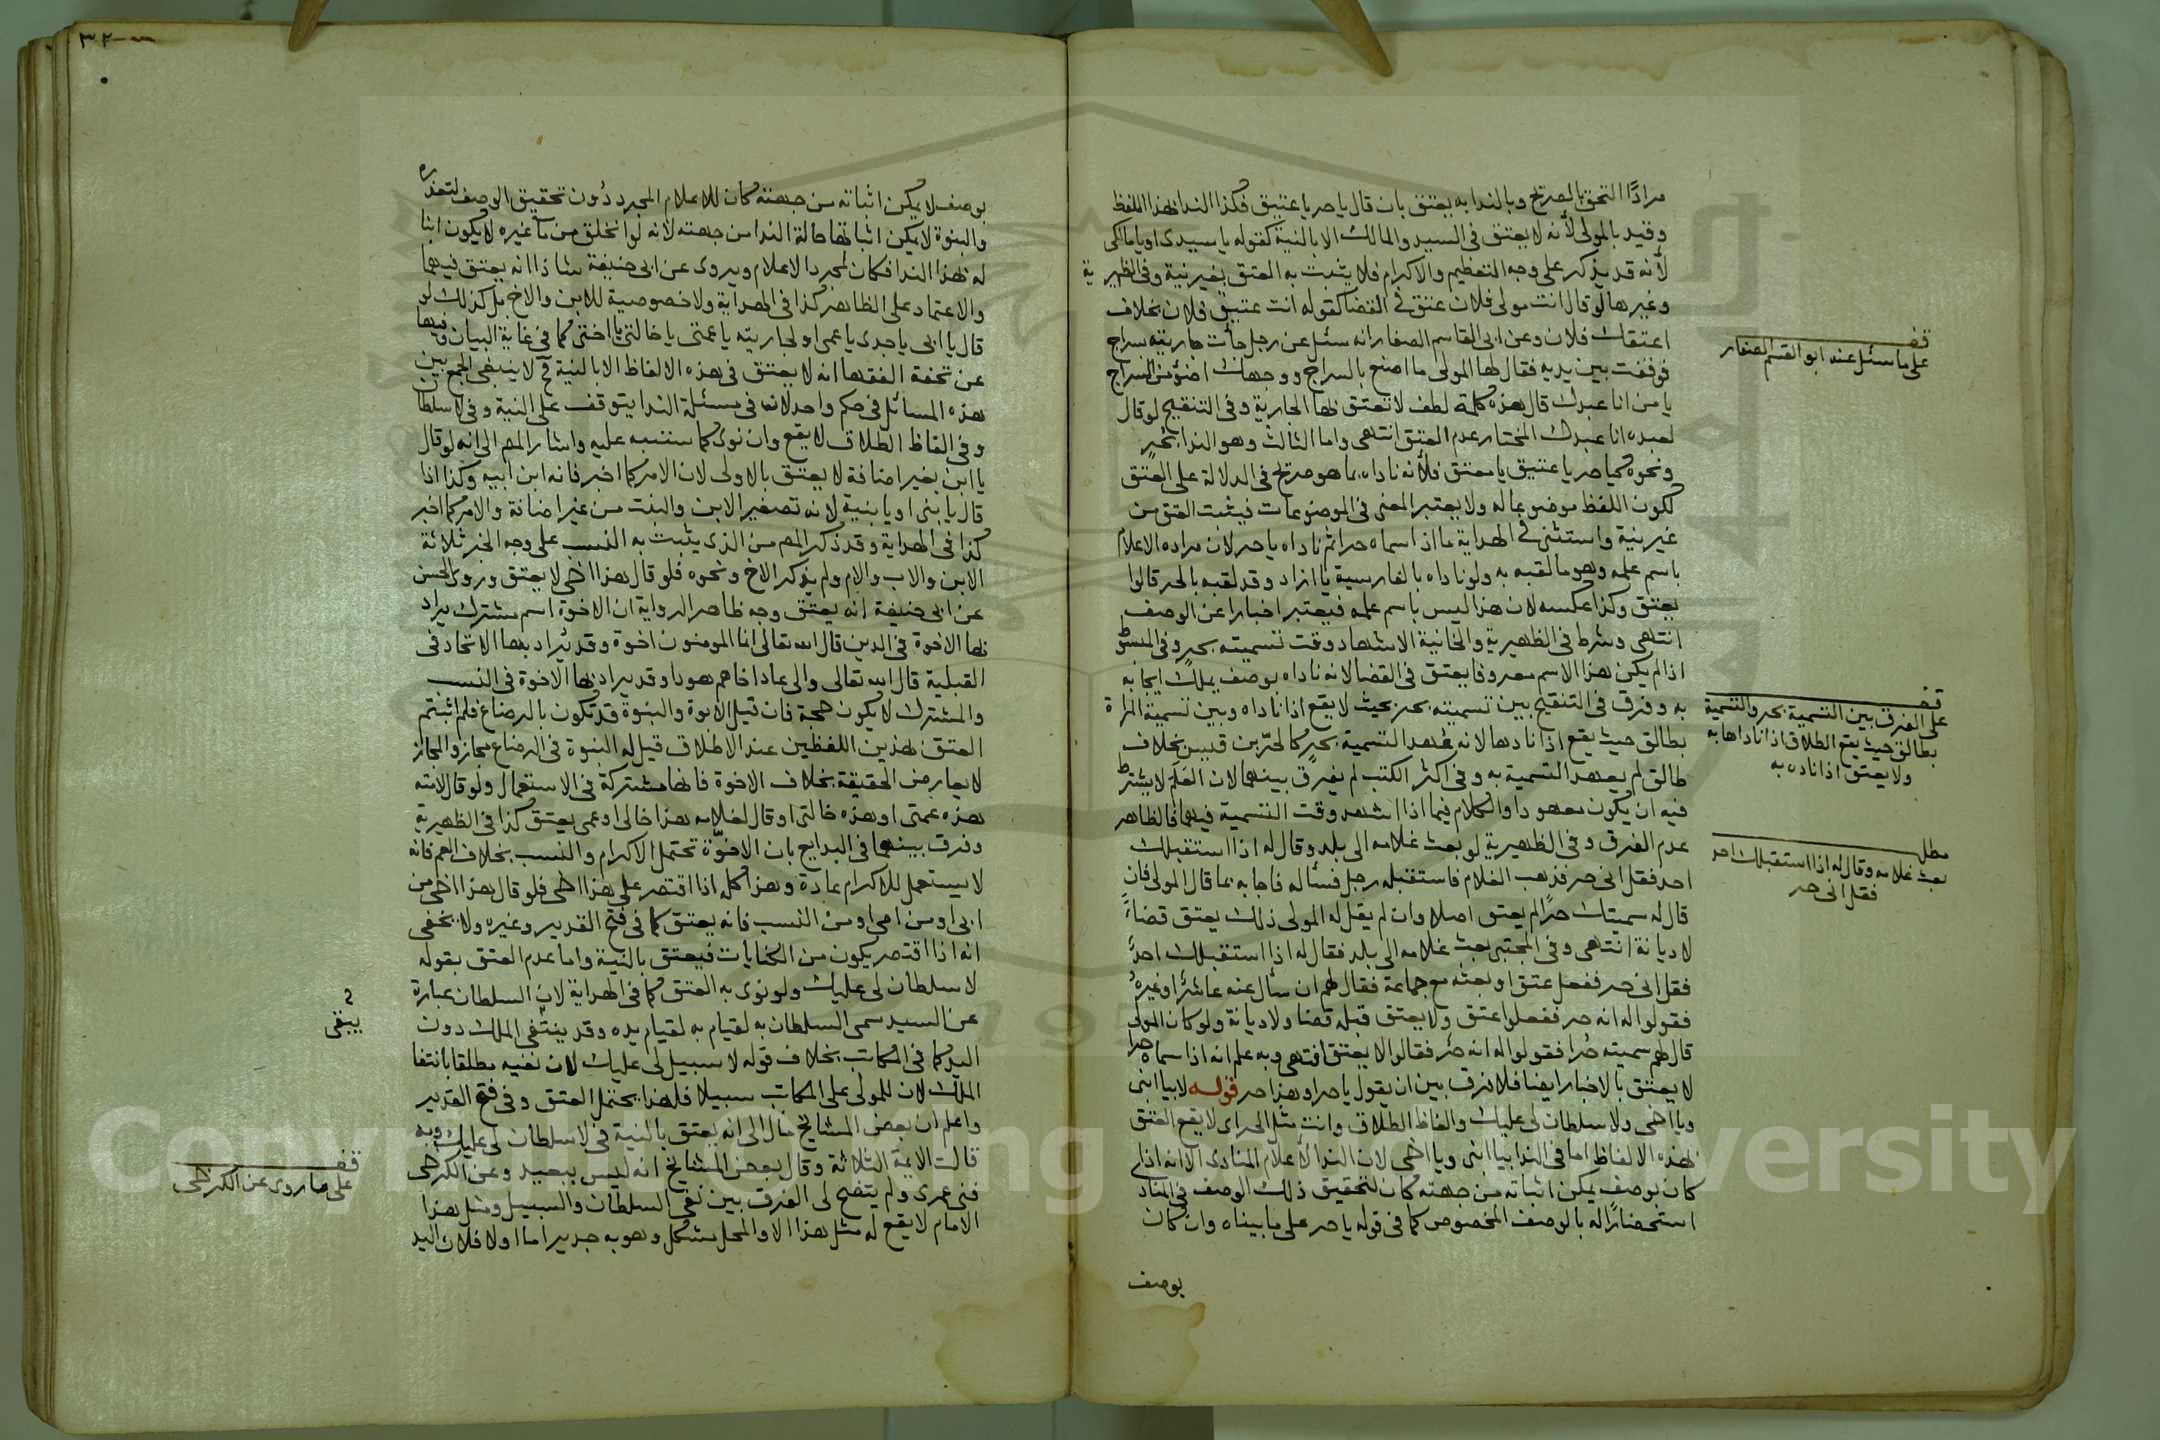 مرادًا التحق بالصريح وبالندا به يعتق بان قال يا حر يا عتيق فكذا الندا بهذا اللفظ
وقيد بالمولى لأنه لا يعتق في السيد والمالك الا بالنية كقوله يا سيدي او يا مالكي
لأنه قد يذكر على وجه التعظيم والاكرام فلا يثبت به العتق بغير نية وفي الظهيرية
وغيرها لو قال انت مولى فلان عتق في القضا كقوله انت عتيق فلان بخلاف
اعتقك فلان وعن ابي القاسم الصفار انه سئل عن رجل جأت جاريته بسراج
فوقفت بين يديه فقال لها المولى ما اصنع بالسراج ووجهك اضوء من السراج
يا من انا عبدك قال هذه كلمة لطف لا تعتق بها الجارية وفي التنقيح لو قال
لعبده انا عبدك المختار عدم العتق انتهى واما الثالث وهو الندا بحر
ونحوه كيا حر يا عتيق يا معتق فلأنه ناداه بما هو صريح في الدلالة على العتق
لكون اللفظ موضوعا له ولا يعتبر المعنى في الموضوعات فيثبت العتق من
غير نية واستثنى في الهداية ما اذا سماه حرا ثم ناداه يا حر لان مراده الاعلام
باسم علمه وهو ما لقبه به ولو ناداه بالفارسية يا ازاد وقد لقبه بالحر قالوا
يعتق وكذا عكسه لان هذا ليس باسم علمه فيعتبر اخبارا عن الوصف
انتهى وشرط في الظهيرية والخانية الاشهاد وقت تسميته بحر وفي المبسوط
اذا لم يكن هذا الاسم معروفا يعتق في القضا لانه ناداه بوصف يملك ايجابه
به وفرق في التنقيح بين تسميته بحر بحيث لا يقع اذا ناداه وبين تسمية المراة
بطالق حيث يقع اذا نادها لانه عهد التسمية بحر كالحر بن قيس بخلاف
طالق لم يعهد التسمية به وفي اكثر الكتب لم يفرق بينهما لان العلم لا يشترط
فيه ان يكون معهودا والكلام فيما اذا اشهد وقت التسمية فيهما فالظاهر
عدم الفرق وفي الظهيرية لو بعث غلامه الى بلد وقال له اذا استقبلك
احد فقل اني حر فذهب الغلام فاستقبله رجل فسأله فاجابه بما قال المولى فان
قال له سميتك حرًا لم يعتق اصلا وان لم يقل له المولى ذلك يعتق قضاءً
لا ديانة انتهى وفي المجتبى بعث غلامه الى بلد فقال له اذا استقبلك احد
فقل اني حر ففعل عتق او بعثه مع جماعة فقال لهم ان سأل عنه عاشر او غيره
فقولوا له انه حر ففعلوا عتق ولا يعتق قبله قضا ولا ديانة ولو كان المولى
قال لهم سميته حرا فقولوا له انه حر فقالوا لا يعتق انتهى وبه علم انه اذا سماه حرا
لا يعتق بالاخبار ايضا فلا فرق بين ان يقول يا حر او هذا حر قوله لا بيا ابني
ويا اخي ولا سلطان لي عليك والفاظ الطلاق وانت مثل الحر اي لا يقع العتق
بهذه الالفاظ اما في الندا بيا ابني ويا اخي لان الندا لاعلام المنادى الا انه اذا
كان بوصف يمكن اثباته من جهته كان لتحقيق ذلك الوصف في المناد
استحضارًا له بالوصف المخصوص كما في قوله يا حر على ما بيناه وان كان
بوصف
قف
على ما سئل عنه ابو القسم الصفار
قف
على الفرق بين التسمية بحر والتسمية
بطالق حيث يقع الطلاق اذا ناداها به
ولا يعتق اذا ناده به
مطلب
بعث غلامه وقال له اذا استقبلك احد
فقل اني حر
٣٢
بوصف لا يمكن اثباته من جهته كان للاعلام المجرد دون تحقيق الوصف لتعذره
والبنوة لا يمكن اثباتها حالة الندا من جهته لانه لو انخلق من مآ غيره لا يكون ابنا
له بهذا الندا فكان لمجرد الاعلام ويروى عن ابي حنيفة شاذا انه يعتق فيهما
والاعتماد على الظاهر كذا في الهداية ولا خصوصية للابن والاخ بل كذلك لو
قال يا ابي يا جدي يا عمي او لجاريته يا عمتي يا خالتي يا اختي كما في غاية البيان وفيها
عن تحفة الفقها انه لا يعتق في هذه الالفاظ الا بالنية فح لا ينبغي الجمع بين
هذه المسائل في حكم واحد لان في مسئلة الندا يتوقف على النية وفي لا سلطان
وفي الفاظ الطلاق لا يقع وان نوى كما سننبه عليه واشار المص الى انه لو قال
يا ابن بغير اضافة لا يعتق بالاولى لان الامر كما اخبر فانه ابن ابيه وكذا اذا
قال يا بني او يا بنية لانه تصغير الابن والبنت من غير اضافة والامر كما اخبر
كذا في الهداية وقد ذكر المص من الذي يثبت به النسب على وجه الخبر ثلاثة
الابن والاب والام ولم يذكر الاخ ونحوه فلو قال هذا اخي لا يعتق وروى الحسن
عن ابي حنيفة انه يعتق وجه ظاهر الرواية ان الاخوة اسم مشترك يراد
بها الاخوة في الدين قال الله تعالى انما المومنون اخوة وقد يراد بها الاتحاد في
القبيلة قال الله تعالى والى عاد اخاهم هودا وقد يراد بها الاخوة في النسب
والمشترك لا يكون حجة فان قيل الابوة والبنوة قد تكون بالرضاع فلم اثبتم
العتق بهذين اللفظين عند الاطلاق قيل له البنوة في الرضاع مجاز والمجاز
لا يعارض الحقيقة بخلاف الاخوة فانها مشتركة في الاستعمال ولو قال لامته
هذه عمتي او هذه خالتي او قال لغلامه هذا خالي او عمي يعتق كذا في الظهيرية
وفرق بينهما في البدايع بان الاخوة تحتمل الاكرام والنسب بخلاف العم فانه
لا يستعمل للاكرام عادة وهذا كله اذا اقتصر على هذا اخي فلو قال هذا اخي من
ابي او من امي او من النسب فانه يعتق كما في فتح القدير وغيره ولا يخفى
انه اذا اقتصر يكون من الكنايات فيعتق بالنية واما عدم العتق بقوله
لا سلطان لي عليك ولو نوى به العتق كما في الهداية لان السلطان عبارة
عن السيد سمي السلطان به لقيام به لقيام يده وقد ينتفي الملك دون
اليد كما في المكاتب بخلاف قوله لا سبيل لي عليك لان نفيه مطلقا بانتفا
الملك لان للمولى على المكاتب سبيلا فلهذا يحتمل العتق وفي فتح القدير
واعلم ان بعض المشايخ مال الى انه يعتق بالنية في لا سلطان لي عليك وبه
قالت الائمة الثلاثة وقال بعض المشايخ انه ليس ببعيد وعن الكرخي
فني عمري ولم يتضح لي الفرق بين نفي السلطان والسبيل ومثل هذا
الامام لا يقع له مثل هذا الا والمحل مشكل وهو به جدير اما اولا فلان اليد
يبقى
قف
على ما روي عن الكرخي
Copyright © King Saud University